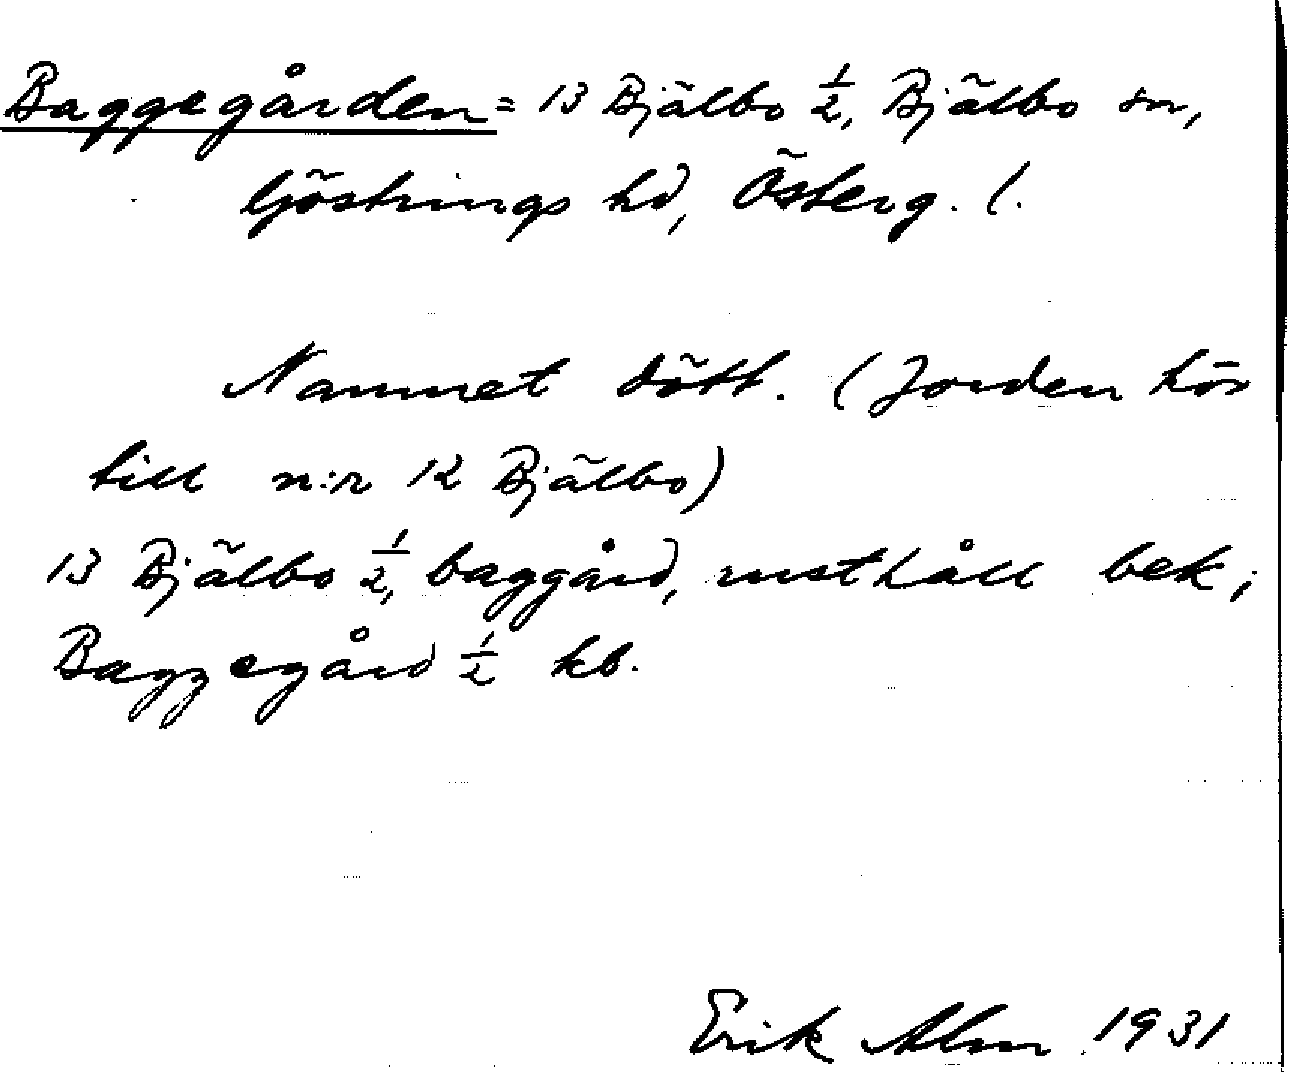 Baggegården = 13 Bjälbo 1/2, Bjälbo sn,
Göstrings hd, Österg. l.
Namnet dött. (Jorden hör
till n:r 12 Bjälbo)
13 Bjälbo 1/2, baggård, rusthåll bek;
Baggegård 1/2 kb.
Erik Alm 1931